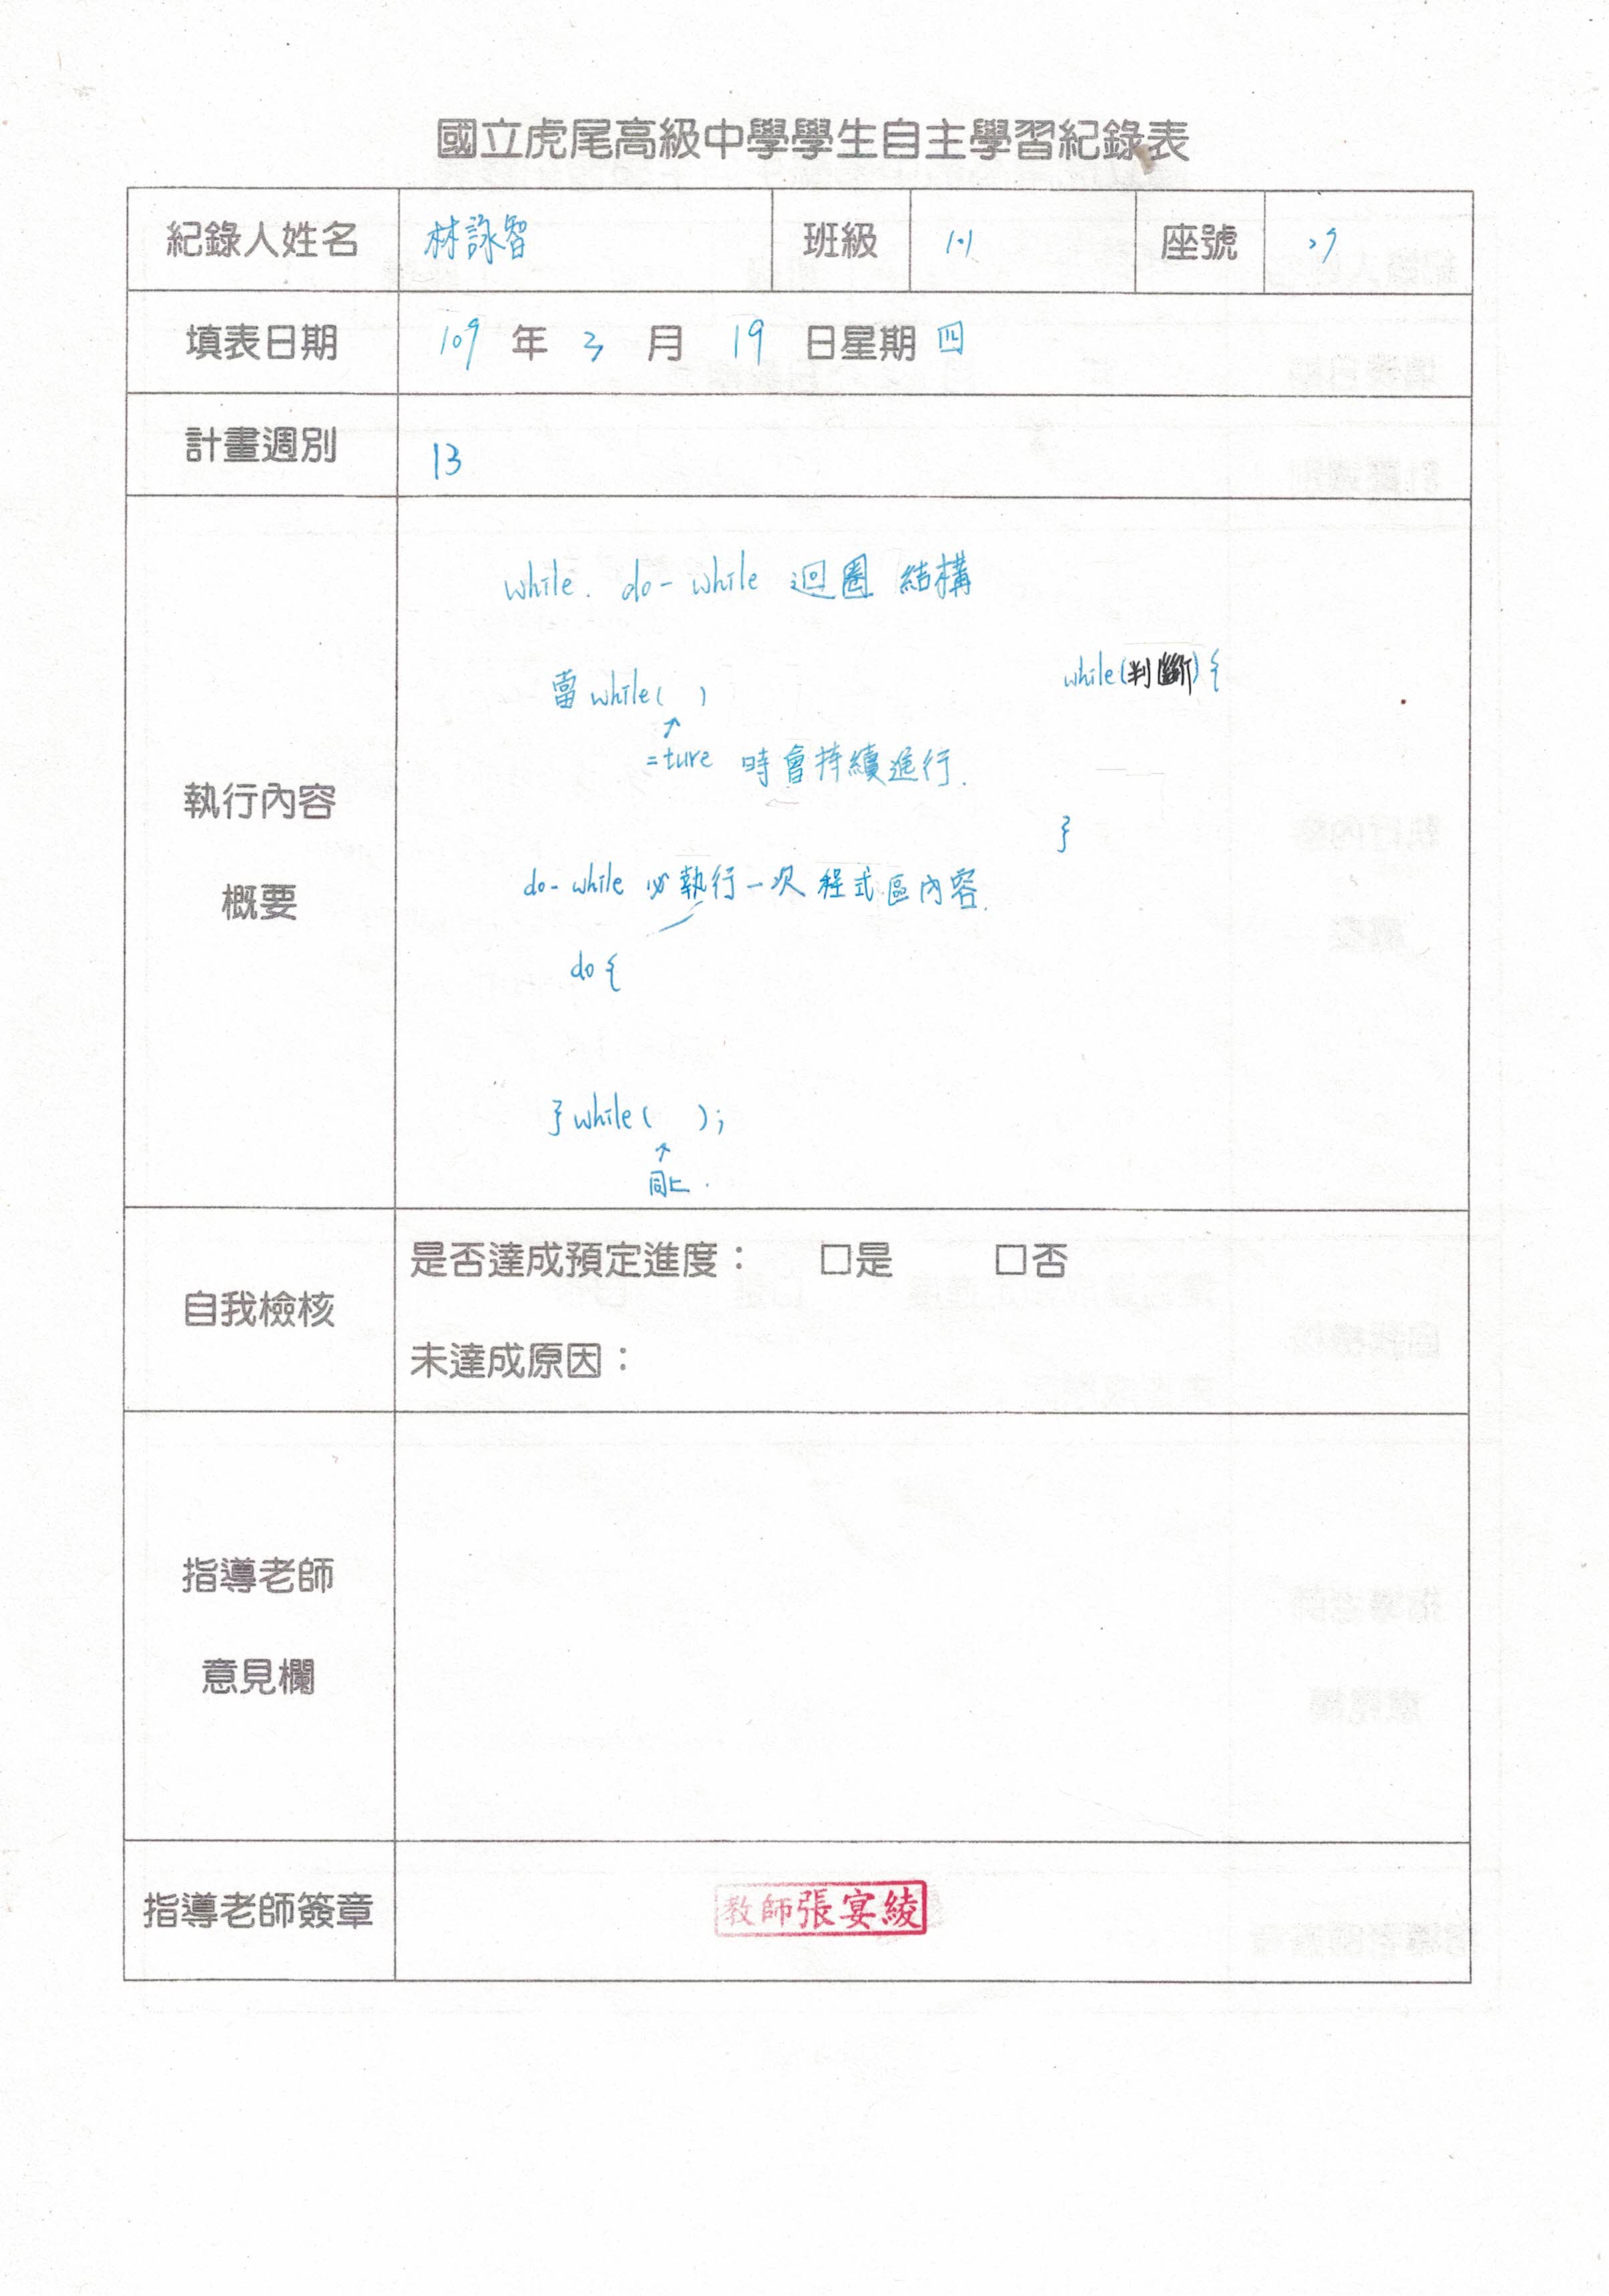 國立虎尾高級中學學生自主學習紀錄表
紀錄人姓名 林詠智 班級 101 座號 29
填表日期 109 年 3 月 19 日星期 四
計畫週別 13
執行內容
概要
while. do-while 迴圈 結構
當 while( )
↑
=ture 時會持續進行.
while(判斷){
}
do-while 必執行一次 程式區內容.
do{
}while( );
↑
同上.
自我檢核
是否達成預定進度： □是 □否
未達成原因：
指導老師
意見欄
指導老師簽章 教師張宴綾